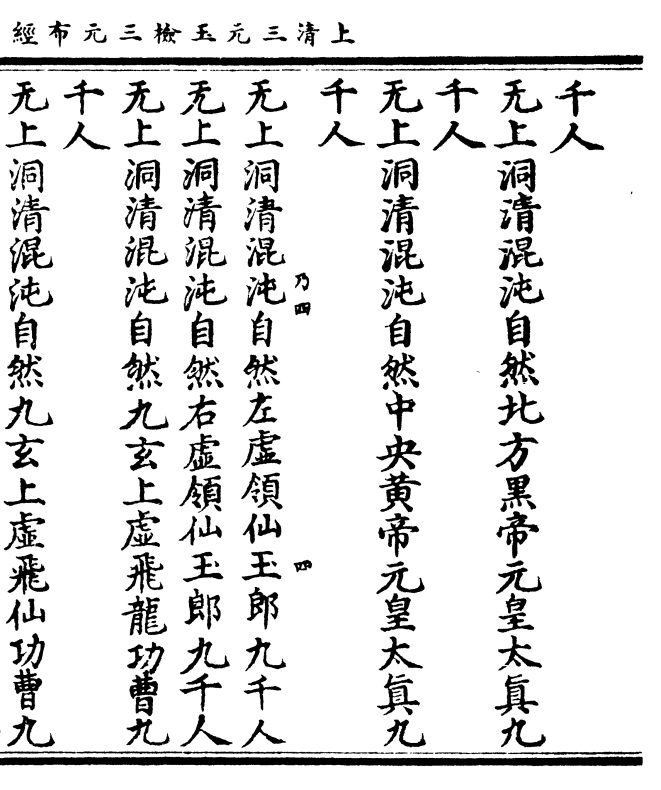 上清三元玉檢三元布經
千人
无上洞清混沌自然北方黑帝元皇太眞九
千人
无上洞清混沌自然中央黄帝元皇太眞九
千人
乃四
四
无上洞清混沌自然左虛領仙玉郎九千人
无上洞清混沌自然右虛領仙玉郎九千人
无上洞清混沌自然九玄上虛飛龍功曹九
千人
无上洞清混沌自然九玄上虛飛仙功曹九